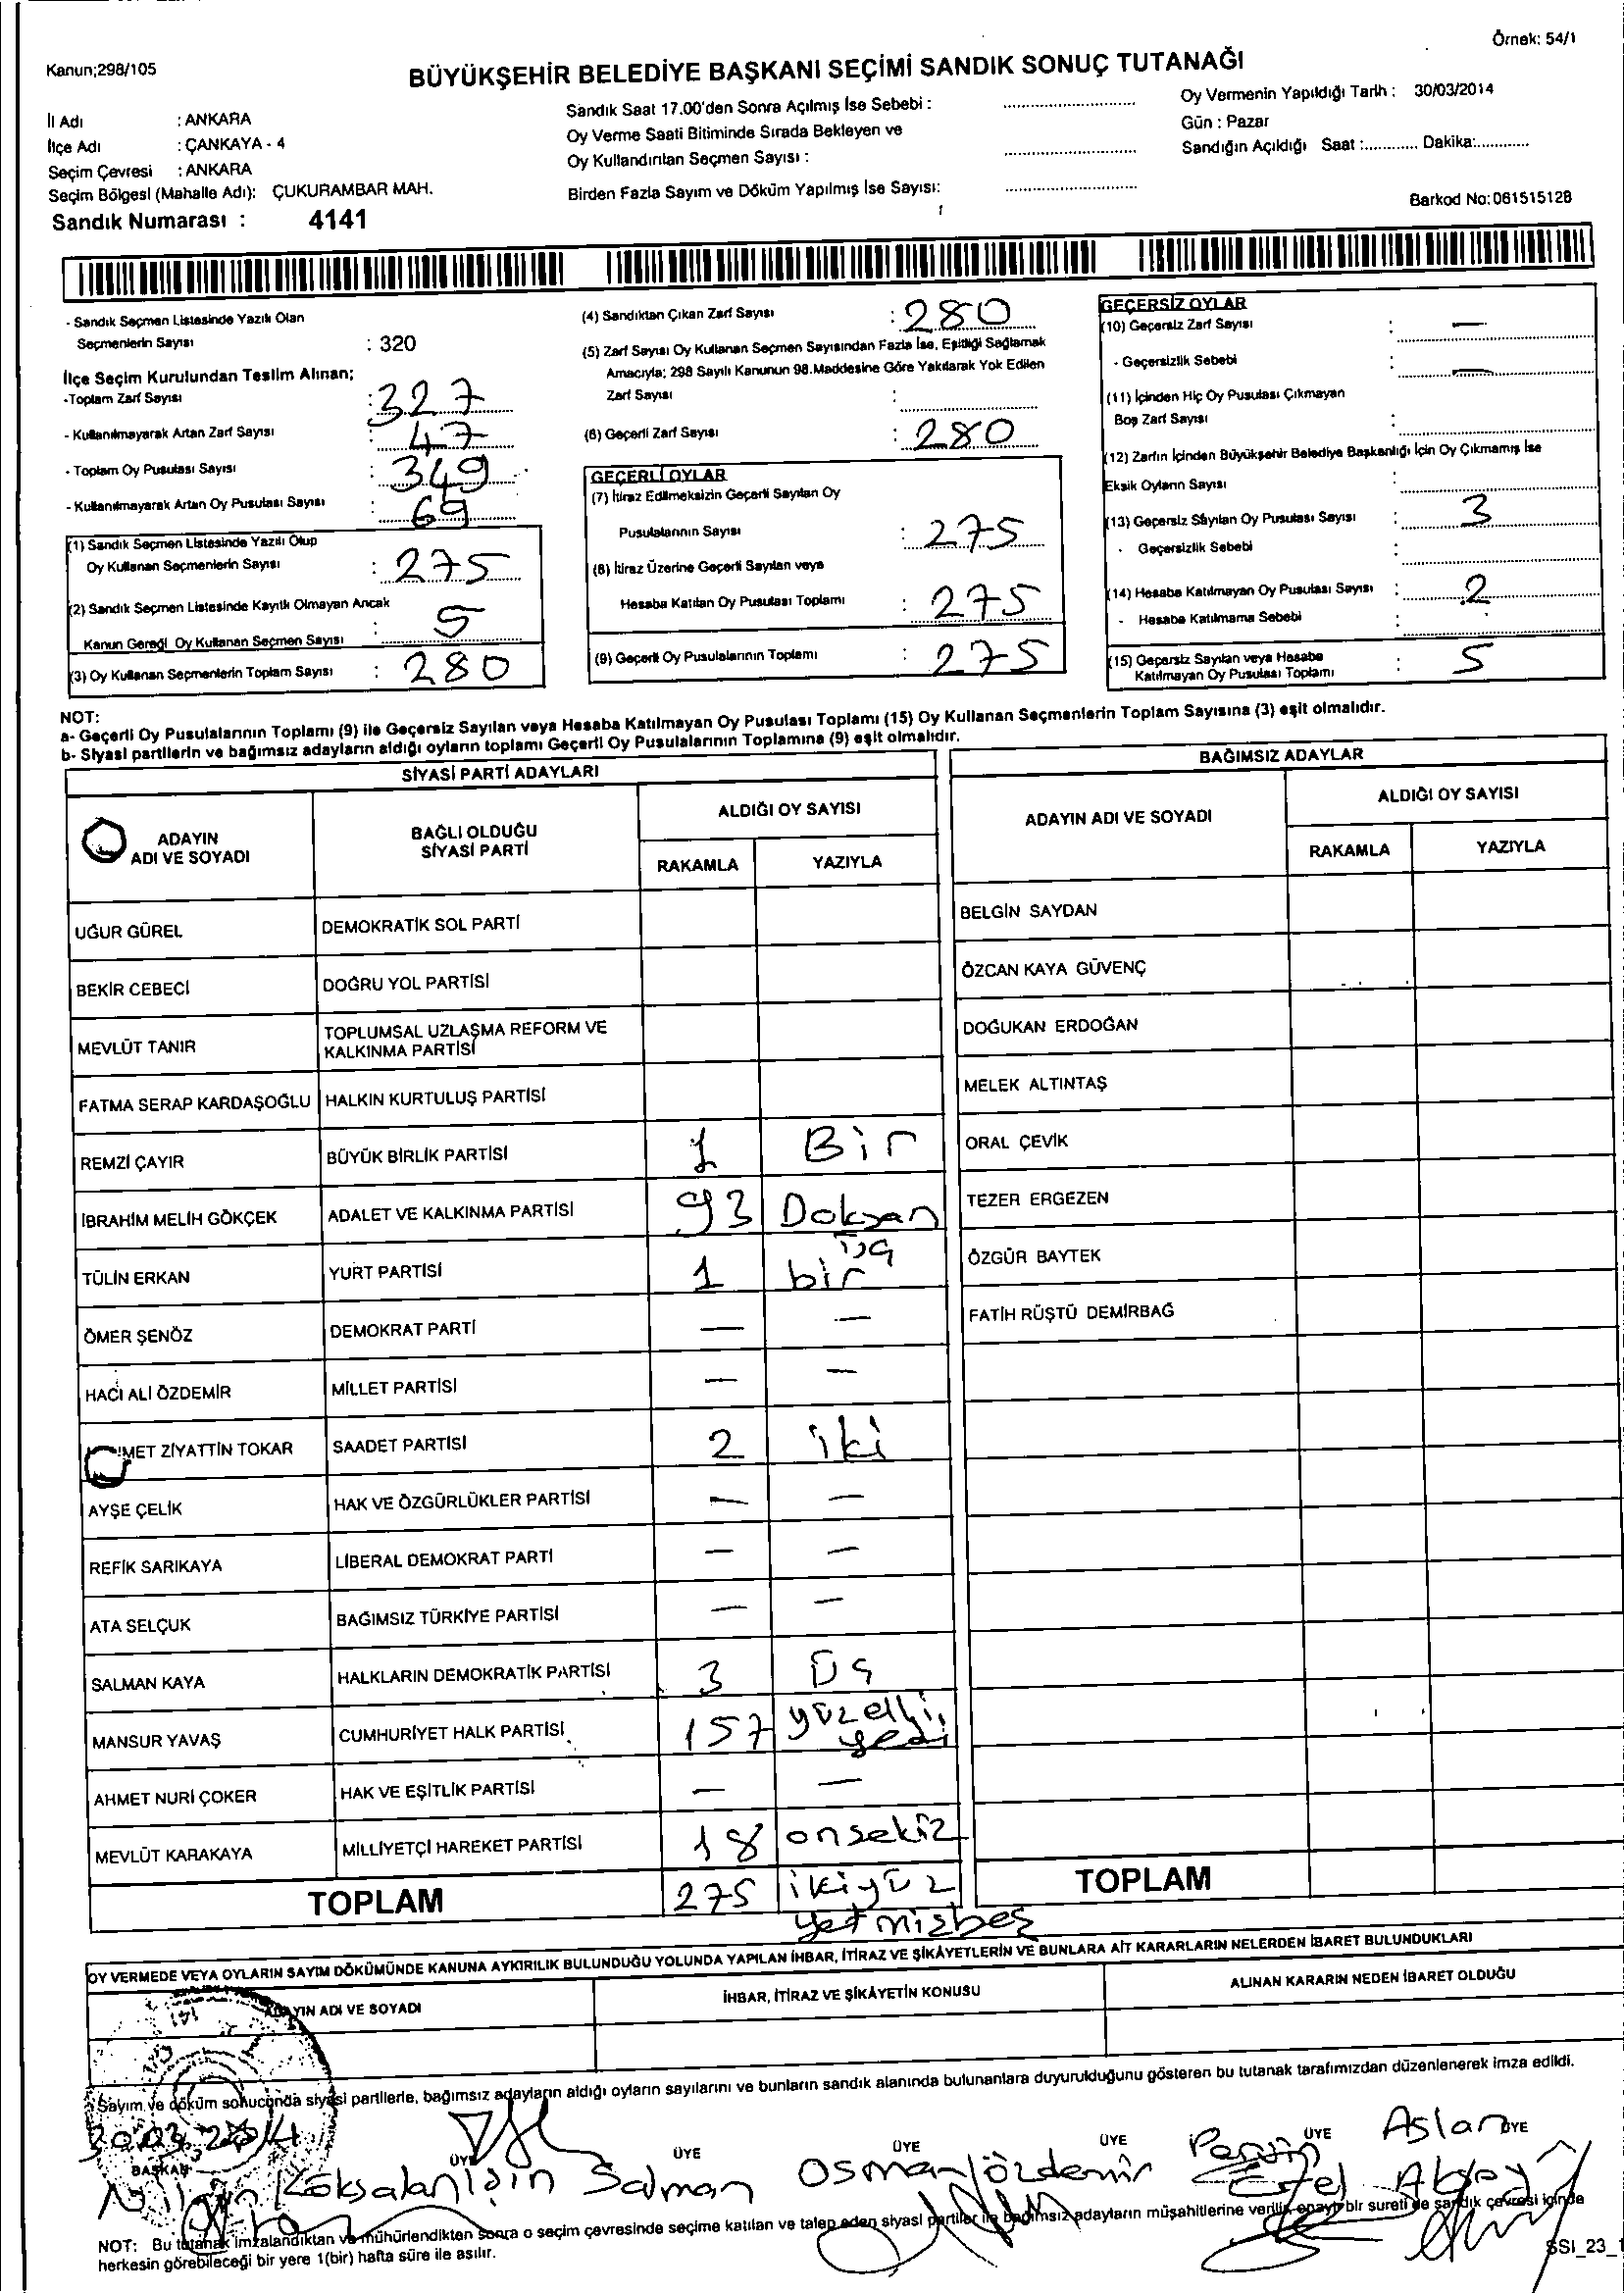 Örnek: 54/1
Kanun;298/105
BÜYÜKŞEHİR BELEDİYE BAŞKANI SEÇİMİ SANDIK SONUÇ TUTANAĞI
İl Adı : ANKARA
İlçe Adı : ÇANKAYA - 4
Seçim Çevresi : ANKARA
Seçim Bölgesi (Mahalle Adı): ÇUKURAMBAR MAH.
Sandık Numarası : 4141
Sandık Saat 17.00'den Sonra Açılmış İse Sebebi :
Oy Verme Saati Bitiminde Sırada Bekleyen ve
Oy Kullandırılan Seçmen Sayısı :
Birden Fazla Sayım ve Döküm Yapılmış İse Sayısı:
Oy Vermenin Yapıldığı Tarih : 30/03/2014
Gün : Pazar
Sandığın Açıldığı Saat :............ Dakika:............
Barkod No:061515128
- Sandık Seçmen Listesinde Yazılı Olan
Seçmenlerin Sayısı : 320
İlçe Seçim Kurulundan Teslim Alınan;
-Toplam Zarf Sayısı : 327
- Kullanılmayarak Artan Zarf Sayısı : 47
- Toplam Oy Pusulası Sayısı : 349
- Kullanılmayarak Artan Oy Pusulası Sayısı : 69
(1) Sandık Seçmen Listesinde Yazılı Olup
Oy Kullanan Seçmenlerin Sayısı : 275
(2) Sandık Seçmen Listesinde Kayıtlı Olmayan Ancak
Kanun Gereği Oy Kullanan Seçmen Sayısı : 5
(3) Oy Kullanan Seçmenlerin Toplam Sayısı : 280
(4) Sandıktan Çıkan Zarf Sayısı : 280
(5) Zarf Sayısı Oy Kullanan Seçmen Sayısından Fazla İse, Eşitliği Sağlamak
Amacıyla; 298 Sayılı Kanunun 98.Maddesine Göre Yakılarak Yok Edilen
Zarf Sayısı :
(6) Geçerli Zarf Sayısı : 280
GEÇERLİ OYLAR
(7) İtiraz Edilmeksizin Geçerli Sayılan Oy
Pusulalarının Sayısı : 275
(8) İtiraz Üzerine Geçerli Sayılan veya
Hesaba Katılan Oy Pusulası Toplamı : 275
(9) Geçerli Oy Pusulalarının Toplamı : 275
GEÇERSİZ OYLAR
(10) Geçersiz Zarf Sayısı : —
- Geçersizlik Sebebi : —
(11) İçinden Hiç Oy Pusulası Çıkmayan
Boş Zarf Sayısı :
(12) Zarfın İçinden Büyükşehir Belediye Başkanlığı İçin Oy Çıkmamış İse
Eksik Oyların Sayısı :
(13) Geçersiz Sayılan Oy Pusulası Sayısı : 3
- Geçersizlik Sebebi :
(14) Hesaba Katılmayan Oy Pusulası Sayısı : 2
- Hesaba Katılmama Sebebi :
(15) Geçersiz Sayılan veya Hesaba
Katılmayan Oy Pusulası Toplamı : 5
NOT:
a- Geçerli Oy Pusulalarının Toplamı (9) ile Geçersiz Sayılan veya Hesaba Katılmayan Oy Pusulası Toplamı (15) Oy Kullanan Seçmenlerin Toplam Sayısına (3) eşit olmalıdır.
b- Siyasi partilerin ve bağımsız adayların aldığı oyların toplamı Geçerli Oy Pusulalarının Toplamına (9) eşit olmalıdır.
SİYASİ PARTİ ADAYLARI
ADAYIN
ADI VE SOYADI
BAĞLI OLDUĞU
SİYASİ PARTİ
ALDIĞI OY SAYISI
RAKAMLA YAZIYLA
UĞUR GÜREL DEMOKRATİK SOL PARTİ
BEKİR CEBECİ DOĞRU YOL PARTİSİ
MEVLÜT TANIR TOPLUMSAL UZLAŞMA REFORM VE
KALKINMA PARTİSİ
FATMA SERAP KARDAŞOĞLU HALKIN KURTULUŞ PARTİSİ
REMZİ ÇAYIR BÜYÜK BİRLİK PARTİSİ 1 Bir
İBRAHİM MELİH GÖKÇEK ADALET VE KALKINMA PARTİSİ 93 Doksan
üç
TÜLİN ERKAN YURT PARTİSİ 1 bir
ÖMER ŞENÖZ DEMOKRAT PARTİ — —
HACI ALİ ÖZDEMİR MİLLET PARTİSİ — —
MET ZİYATTİN TOKAR SAADET PARTİSİ 2 iki
AYŞE ÇELİK HAK VE ÖZGÜRLÜKLER PARTİSİ — —
REFİK SARIKAYA LİBERAL DEMOKRAT PARTİ — —
ATA SELÇUK BAĞIMSIZ TÜRKİYE PARTİSİ — —
SALMAN KAYA HALKLARIN DEMOKRATİK PARTİSİ 3 Üç
MANSUR YAVAŞ CUMHURİYET HALK PARTİSİ 157 yüzelli
yedi
AHMET NURİ ÇOKER HAK VE EŞİTLİK PARTİSİ — —
MEVLÜT KARAKAYA MİLLİYETÇİ HAREKET PARTİSİ 18 onsekiz
TOPLAM 275 ikiyüz
yetmişbeş
BAĞIMSIZ ADAYLAR
ADAYIN ADI VE SOYADI
ALDIĞI OY SAYISI
RAKAMLA YAZIYLA
BELGİN SAYDAN
ÖZCAN KAYA GÜVENÇ
DOĞUKAN ERDOĞAN
MELEK ALTINTAŞ
ORAL ÇEVİK
TEZER ERGEZEN
ÖZGÜR BAYTEK
FATİH RÜŞTÜ DEMİRBAĞ
TOPLAM
OY VERMEDE VEYA OYLARIN SAYIM DÖKÜMÜNDE KANUNA AYKIRILIK BULUNDUĞU YOLUNDA YAPILAN İHBAR, İTİRAZ VE ŞİKÂYETLERİN VE BUNLARA AİT KARARLARIN NELERDEN İBARET BULUNDUKLARI
ADAYIN ADI VE SOYADI
İHBAR, İTİRAZ VE ŞİKÂYETİN KONUSU
ALINAN KARARIN NEDEN İBARET OLDUĞU
Sayım ve döküm sonucunda siyasi partilerle, bağımsız adayların aldığı oyların sayılarını ve bunların sandık alanında bulunanlara duyurulduğunu gösteren bu tutanak tarafımızdan düzenlenerek imza edildi.
30.03.2014
BAŞKAN ÜYE ÜYE ÜYE ÜYE ÜYE ÜYE
Nilgün Köksalan Salman Osman Özdemir Aslan
NOT: Bu tutanak imzalandıktan ve mühürlendikten sonra o seçim çevresinde seçime katılan ve talep eden siyasi partiler ile bağımsız adayların müşahitlerine verilir, onaylı bir sureti de sandık çevresi içinde
herkesin görebileceği bir yere 1(bir) hafta süre ile asılır.
SSI_23_1